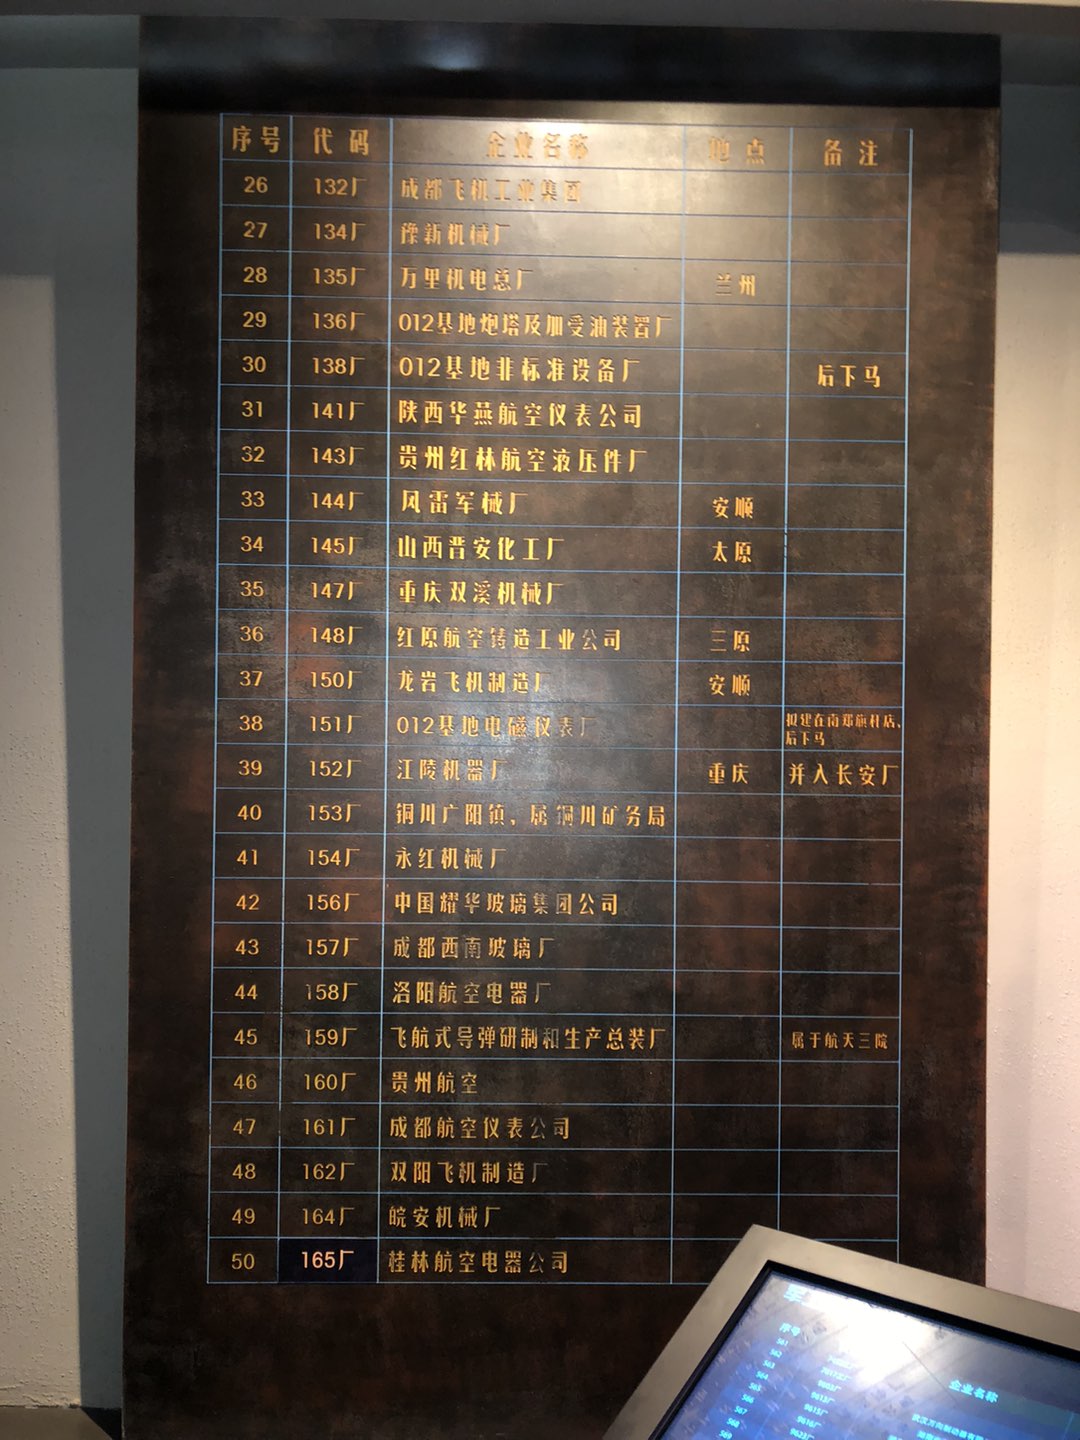 序号 代码 企业名称 地点 备注
26 132厂 成都飞机工业集团
27 134厂 豫新机械厂
28 135厂 万里机电总厂 兰州
29 136厂 012基地炮塔及加受油装置厂
30 138厂 012基地非标准设备厂 后下马
31 141厂 陕西华燕航空仪表公司
32 143厂 贵州红林航空液压件厂
33 144厂 风雷军械厂 安顺
34 145厂 山西晋安化工厂 太原
35 147厂 重庆双溪机械厂
36 148厂 红原航空铸造工业公司 三原
37 150厂 龙岩飞机制造厂 安顺
38 151厂 012基地电磁仪表厂 拟建在南郑旗杆店、
后下马
39 152厂 江陵机器厂 重庆 并入长安厂
40 153厂 铜川广阳镇，属铜川矿务局
41 154厂 永红机械厂
42 156厂 中国耀华玻璃集团公司
43 157厂 成都西南玻璃厂
44 158厂 洛阳航空电器厂
45 159厂 飞航式导弹研制和生产总装厂 属于航天三院
46 160厂 贵州航空
47 161厂 成都航空仪表公司
48 162厂 双阳飞机制造厂
49 164厂 皖安机械厂
50 165厂 桂林航空电器公司
序号 企业名称
561
562
563
564 9603厂
565 9613厂
566 9615厂
567 9616厂 武汉万向制动器有限
568 9623厂
569